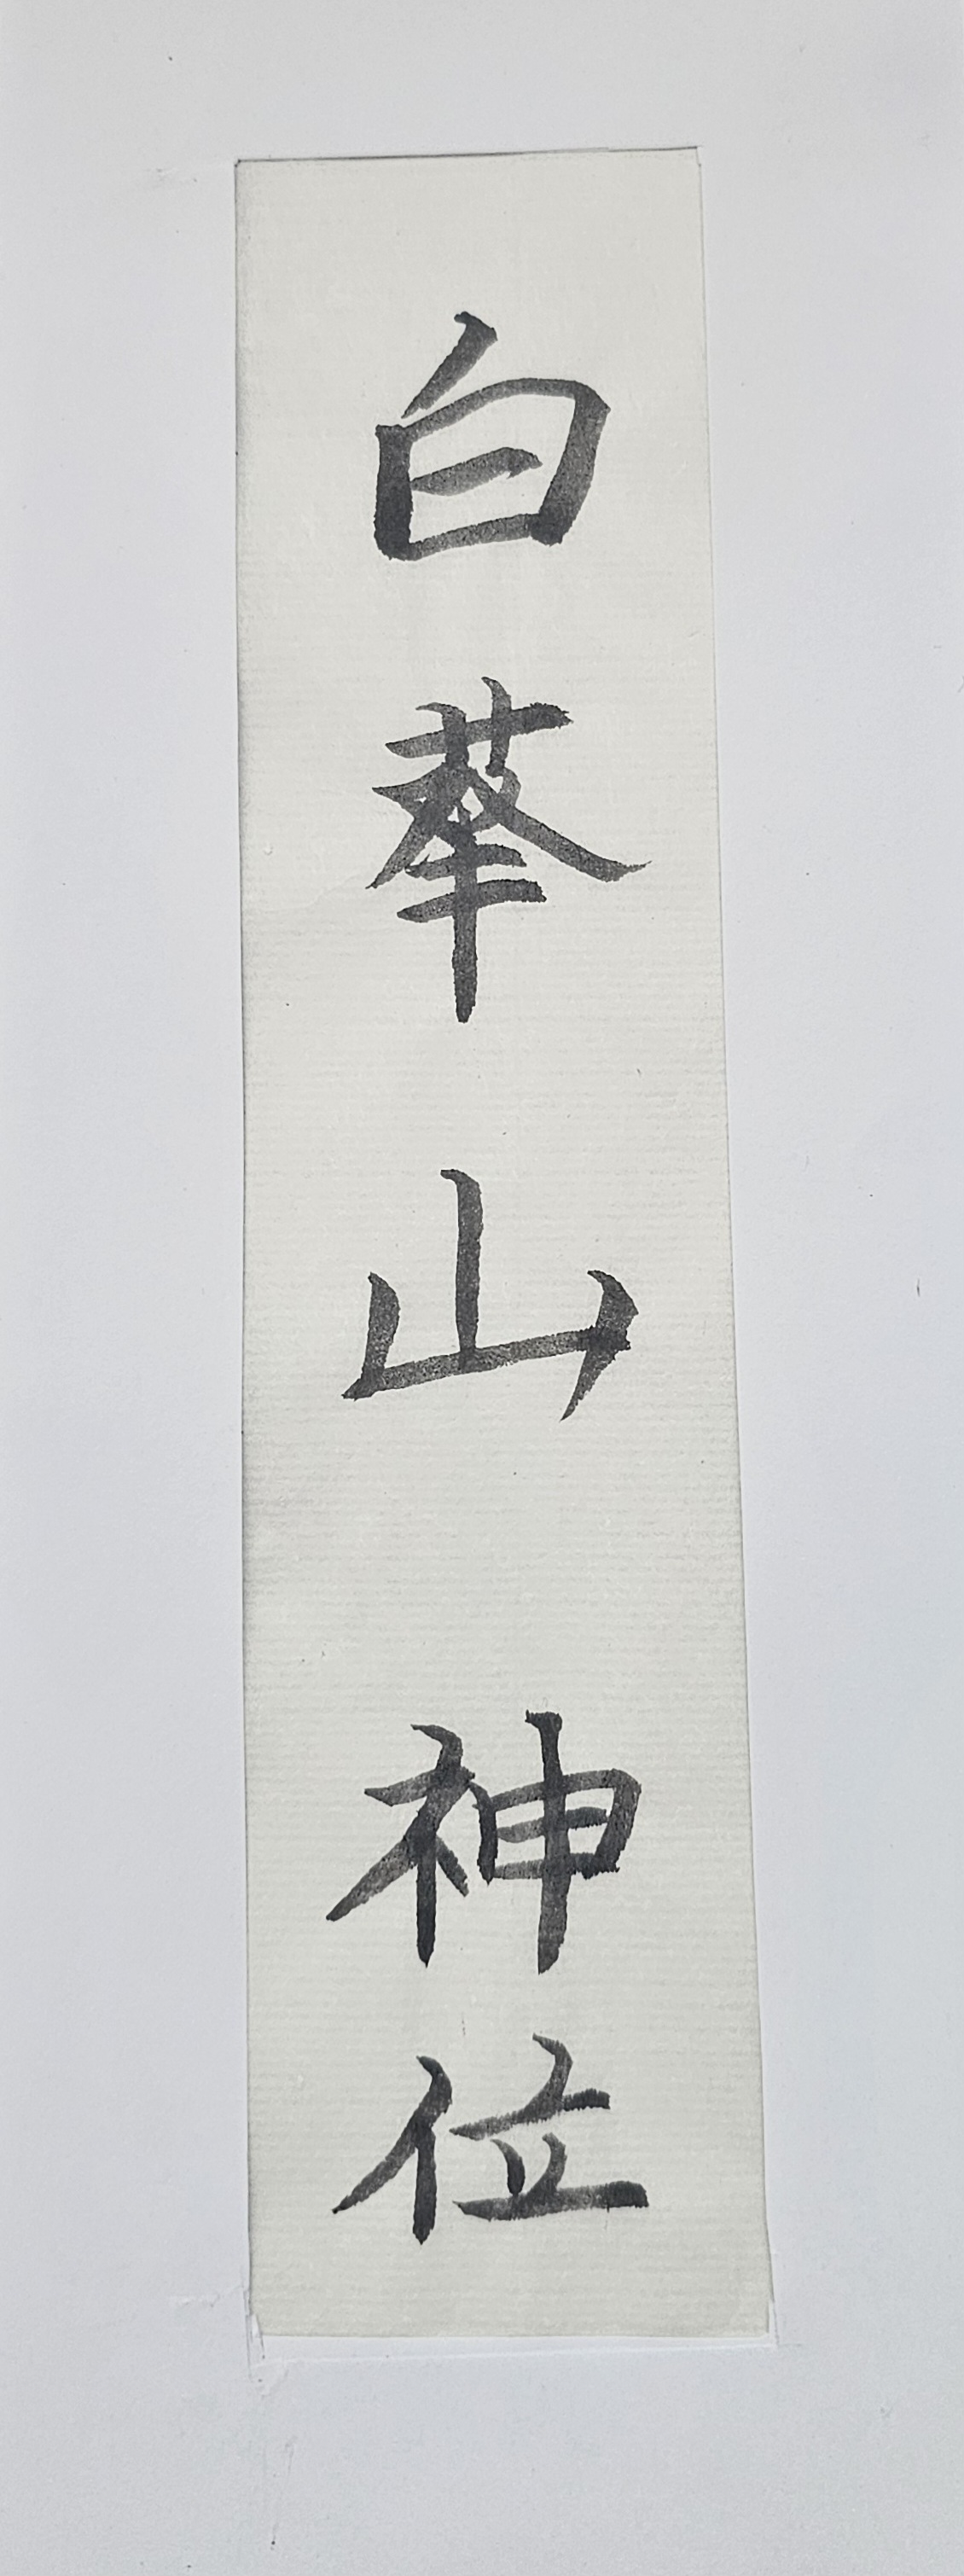 白華山 神位